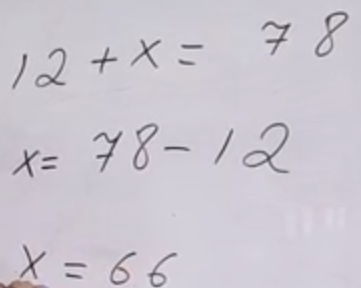 12 + x = 78
x = 78 - 12
x = 66